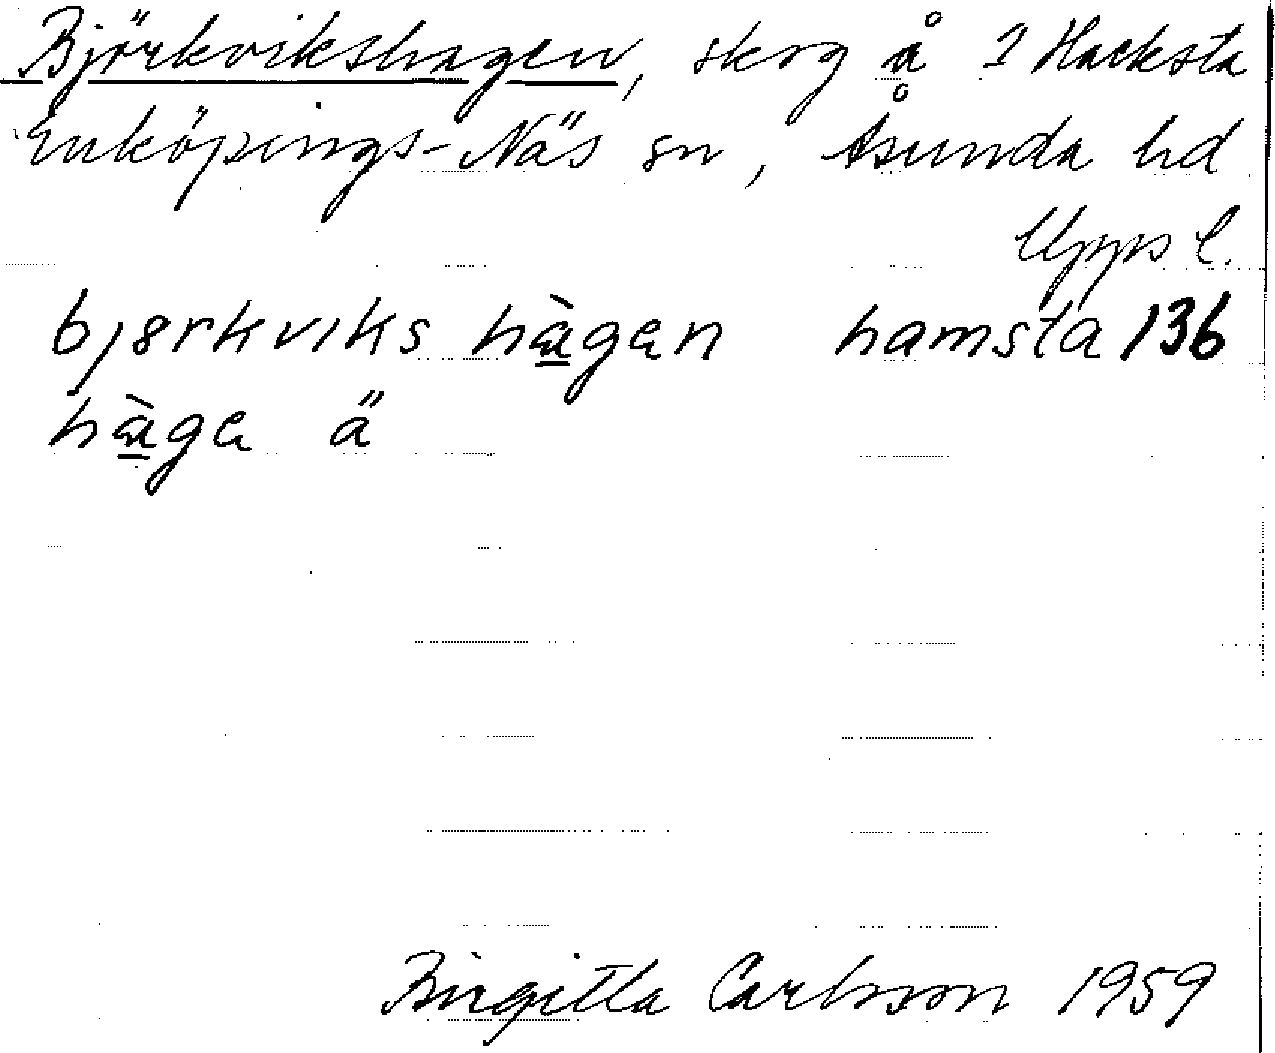 Björkvikshagen, skog å 1 Hacksta
Enköpings-Näs sn, Åsunda hd
Upps l.
bjørkviks hàgen hamsta 136
hàge ä
Birgitta Carlsson 1959